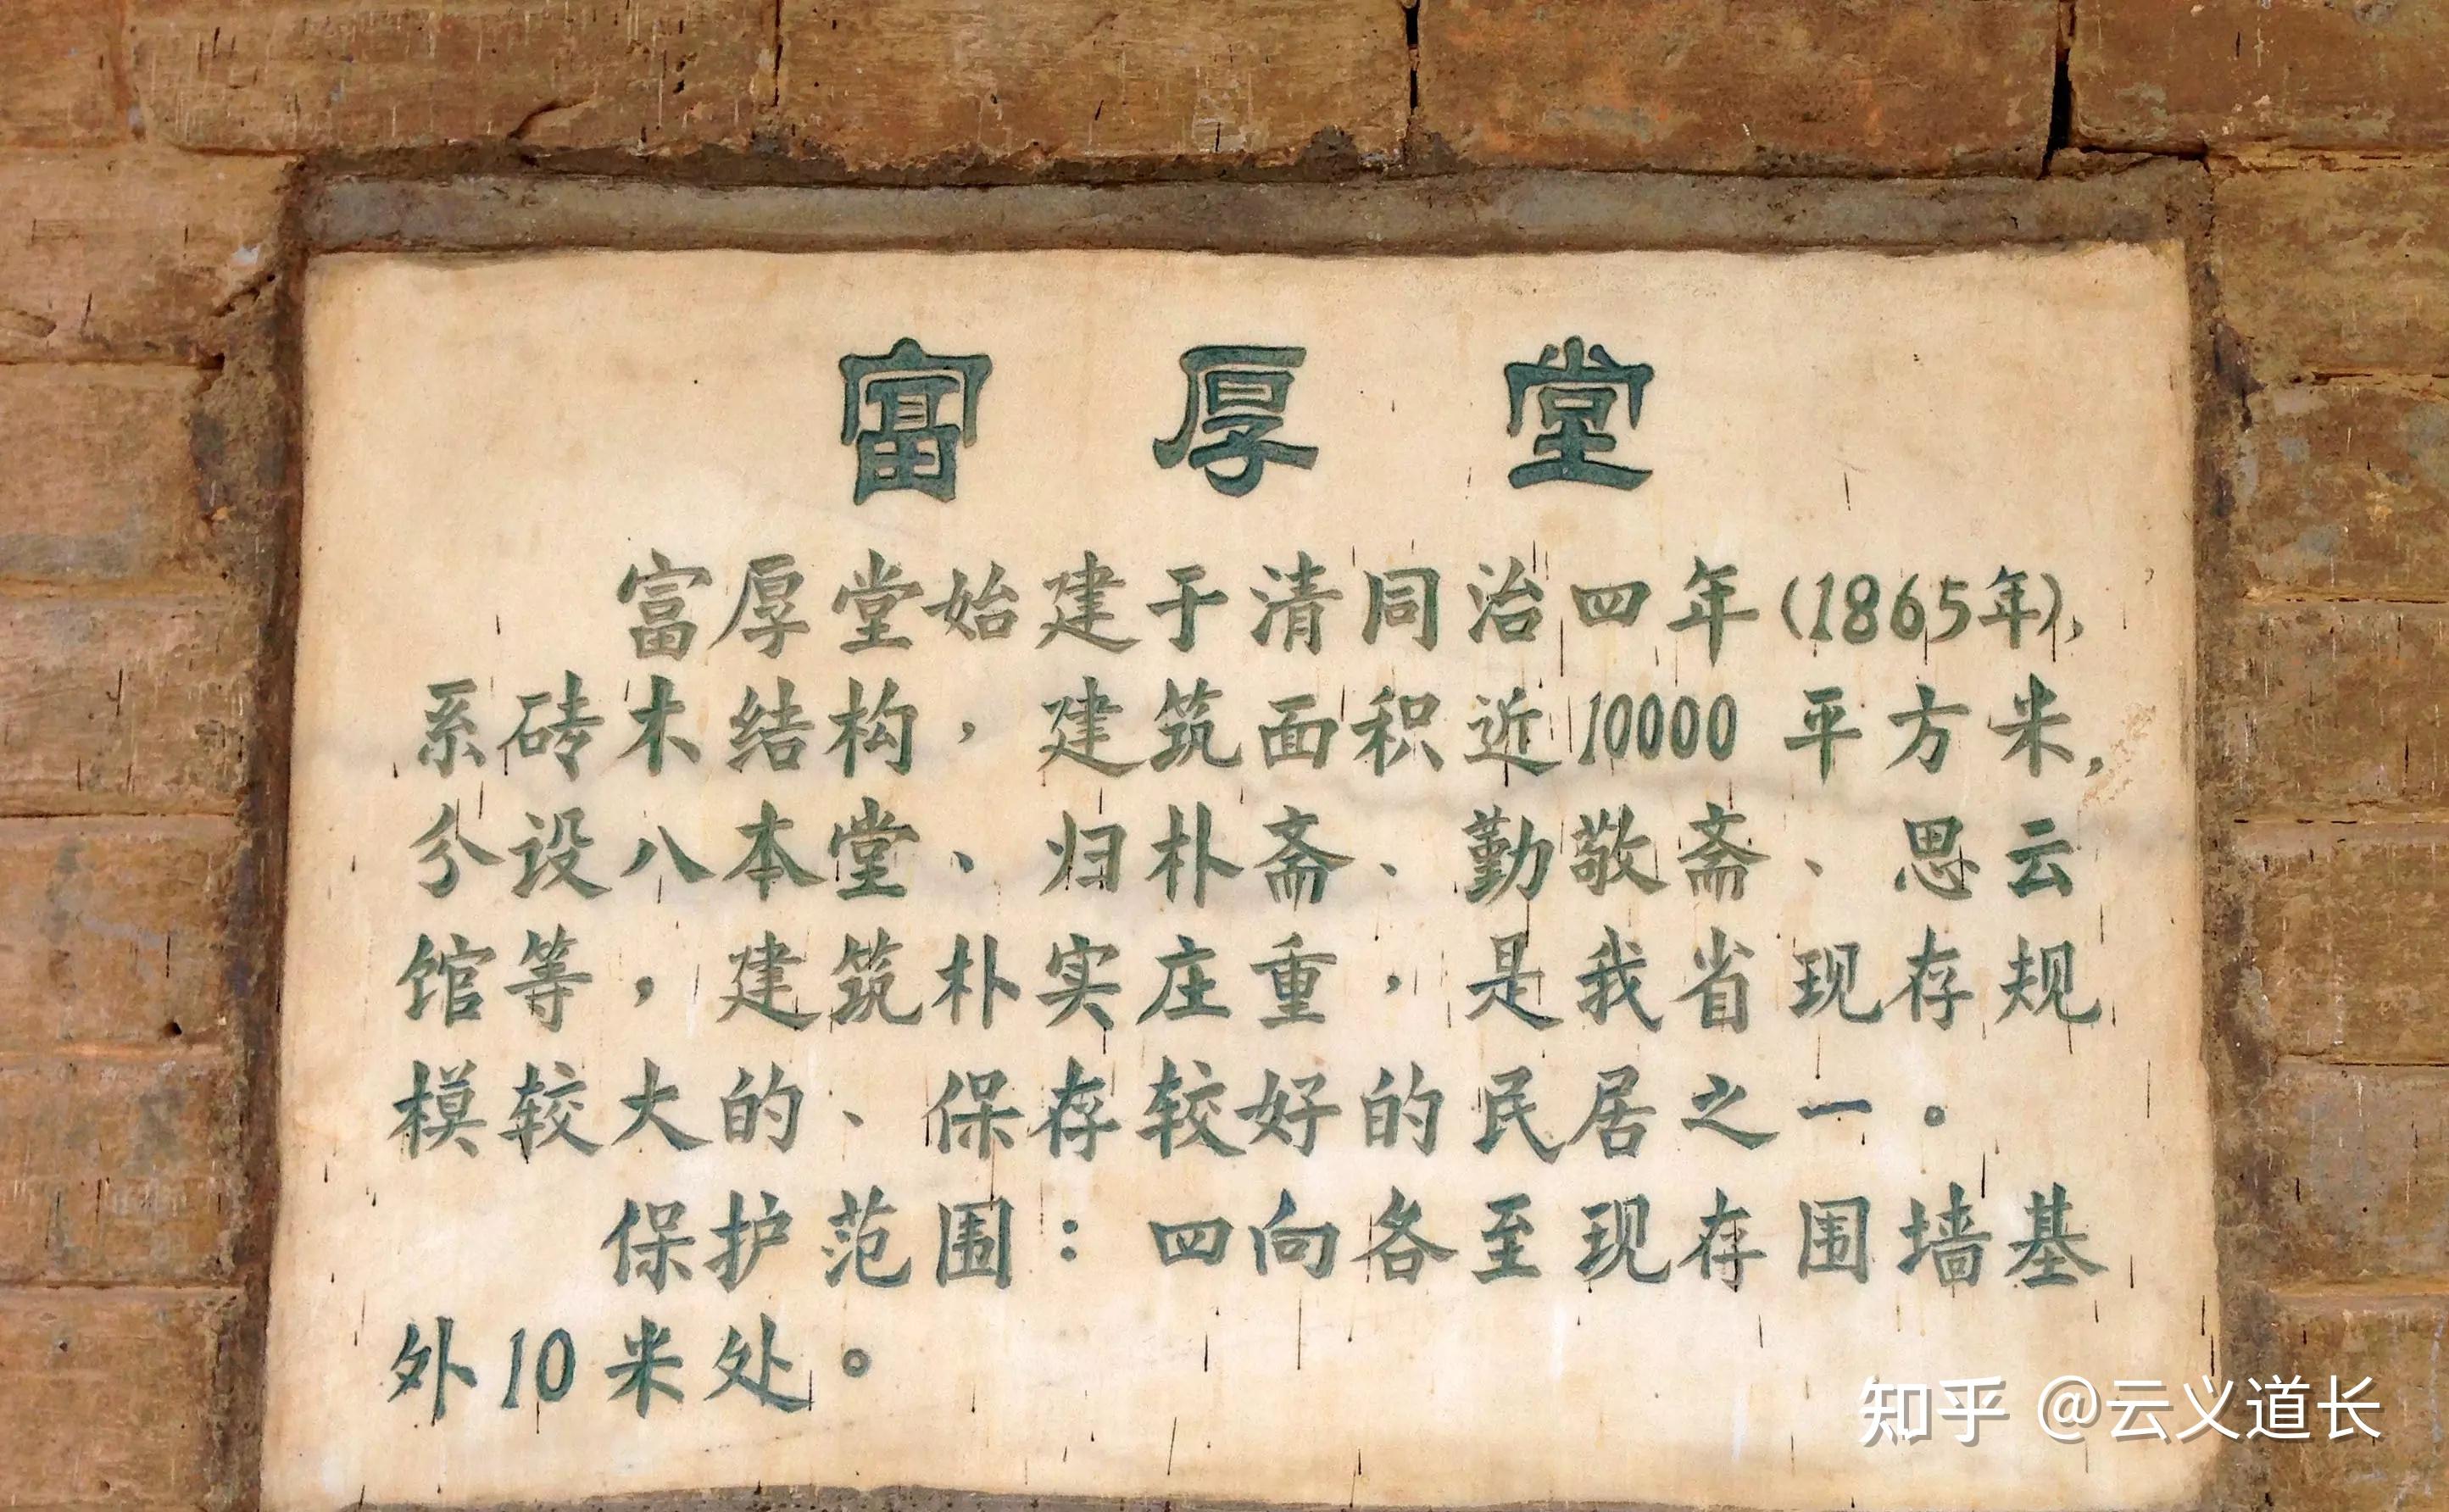 富厚堂
富厚堂始建于清同治四年(1865年),
系砖木结构，建筑面积近10000平方米,
分设八本堂、归朴斋、勤敬斋、思云
馆等，建筑朴实庄重，是我省现存规
模较大的、保存较好的民居之一。
保护范围：四向各至现存围墙基
外10米处。
知乎 @云义道长